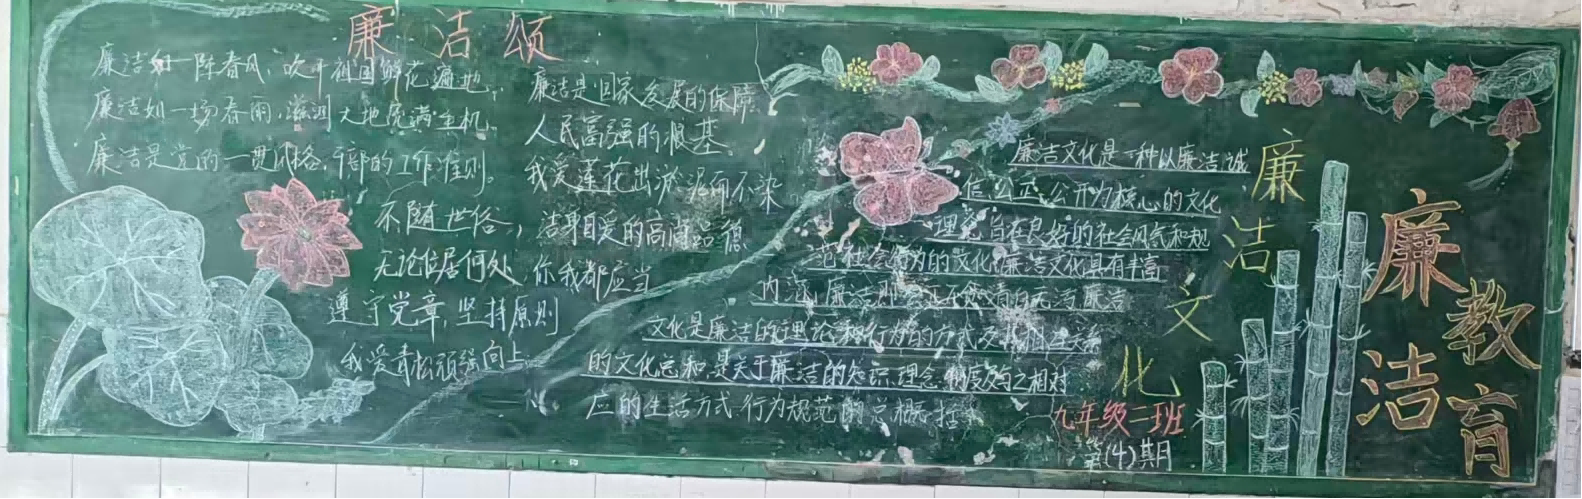 廉洁颂
廉洁如一阵春风,吹开祖国鲜花遍地;
廉洁如一场春雨,滋润大地充满生机。
廉洁是党的一贯风格,干部的工作准则。
廉洁是国家发展的保障,
人民富强的根基。
我爱莲花出淤泥而不染
不随世俗,洁身自爱的高尚品德
无论位居何处,你我都应当
遵守党章,坚持原则
我爱青松顽强向上
廉洁文化是一种以廉洁诚
信公正公开为核心的文化
理念旨在良好的社会风气和规
范社会行为的文化廉洁文化具有丰富
内涵,廉洁即公正不贪清白无污廉洁
文化是廉洁的理论和行为的方式及其相互关系
的文化总和,是关于廉洁的知识理念制度及与之相对
应的生活方式行为规范的总概括
廉洁文化
九年级二班
第(4)期
廉洁教育